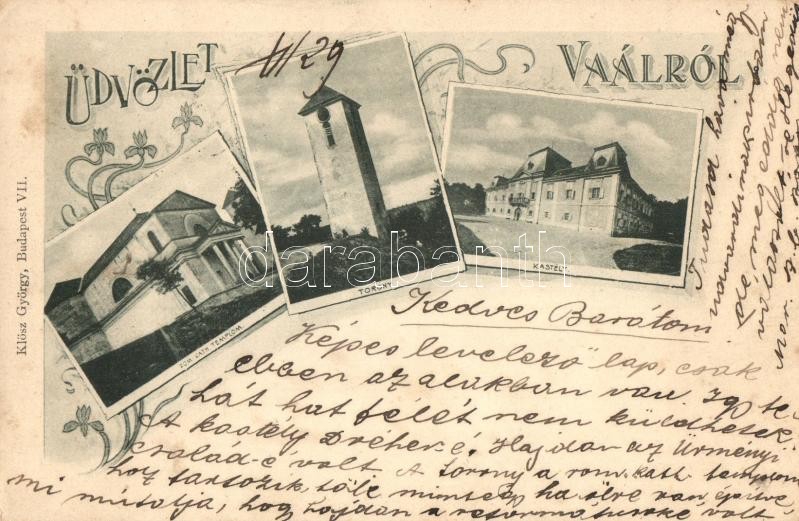 ÜDVÖZLET
VAÁLRÓL
III/29
ROM. KATH. TEMPLOM.
TORONY.
KASTÉLY.
Klösz György, Budapest VII.
darabanth
Kedves Barátom
Képes levelező lap, csak
ebben az alakban van. Igy te-
hát hat félét nem küldhetek.
A kastély Dreher-é. Hajdan az Ürményi
család-é volt. A torony a rom. kath. templom
hoz tartozik tőle mintegy ölre van építve
mi mutatja, hogy hajdan a reformátusoké volt